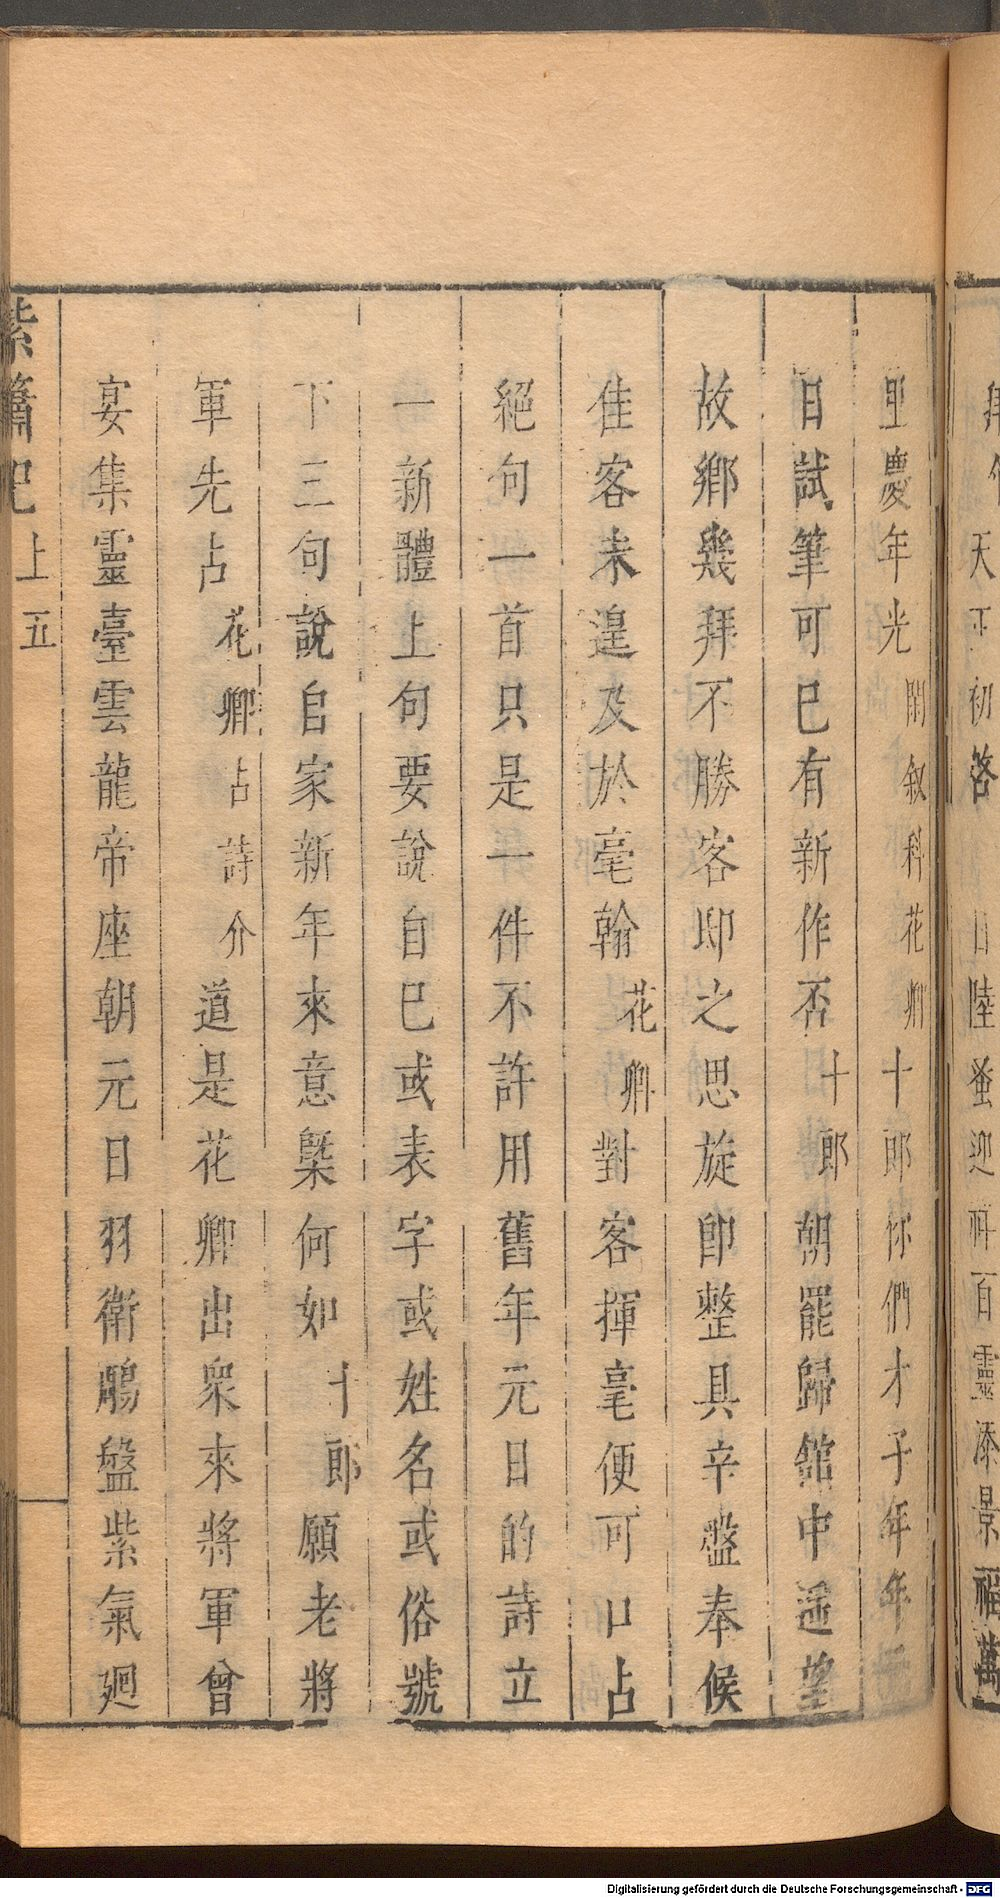 天下初啓 日陸蚤迎 百靈添景福萬
慶年光閑叙科花卿十郎你們才子年年
日試筆可已有新作否十郎朝罷歸館中遥望
故鄉幾拜不勝客邸之思旋即整具辛盤奉候
佳客未遑及於毫翰花卿對客揮毫便可口占
絕句一首只是一件不許用舊年元日的詩立
一新體上句要說自巳或表字或姓名或俗號
下三句說自家新年來意槩何如十郎願老將
軍先占花卿占詩介道是花卿出衆來將軍曾
宴集靈臺雲龍帝座朝元日羽衛鵷盤紫氣廻
紫簫記 上 五
Digitalisierung gefördert durch die Deutsche Forschungsgemeinschaft - DFG